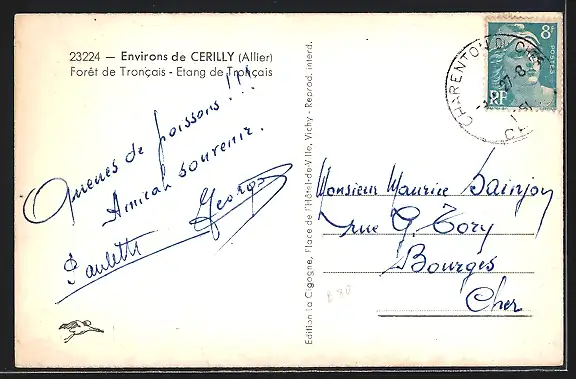 23224 — Environs de CERILLY (Allier)
Forêt de Tronçais - Etang de Tronçais
Queues de poissons !!!
Amical souvenir.
Georges
Paulette
Edition La Cigogne, Place de l'Hôtel-de-Ville, Vichy - Reprod. interd.
8F
POSTES
RF
CHARENTON DU CHER
27-8
Monsieur Maurice Sainjon
rue G. Tory
Bourges
Cher